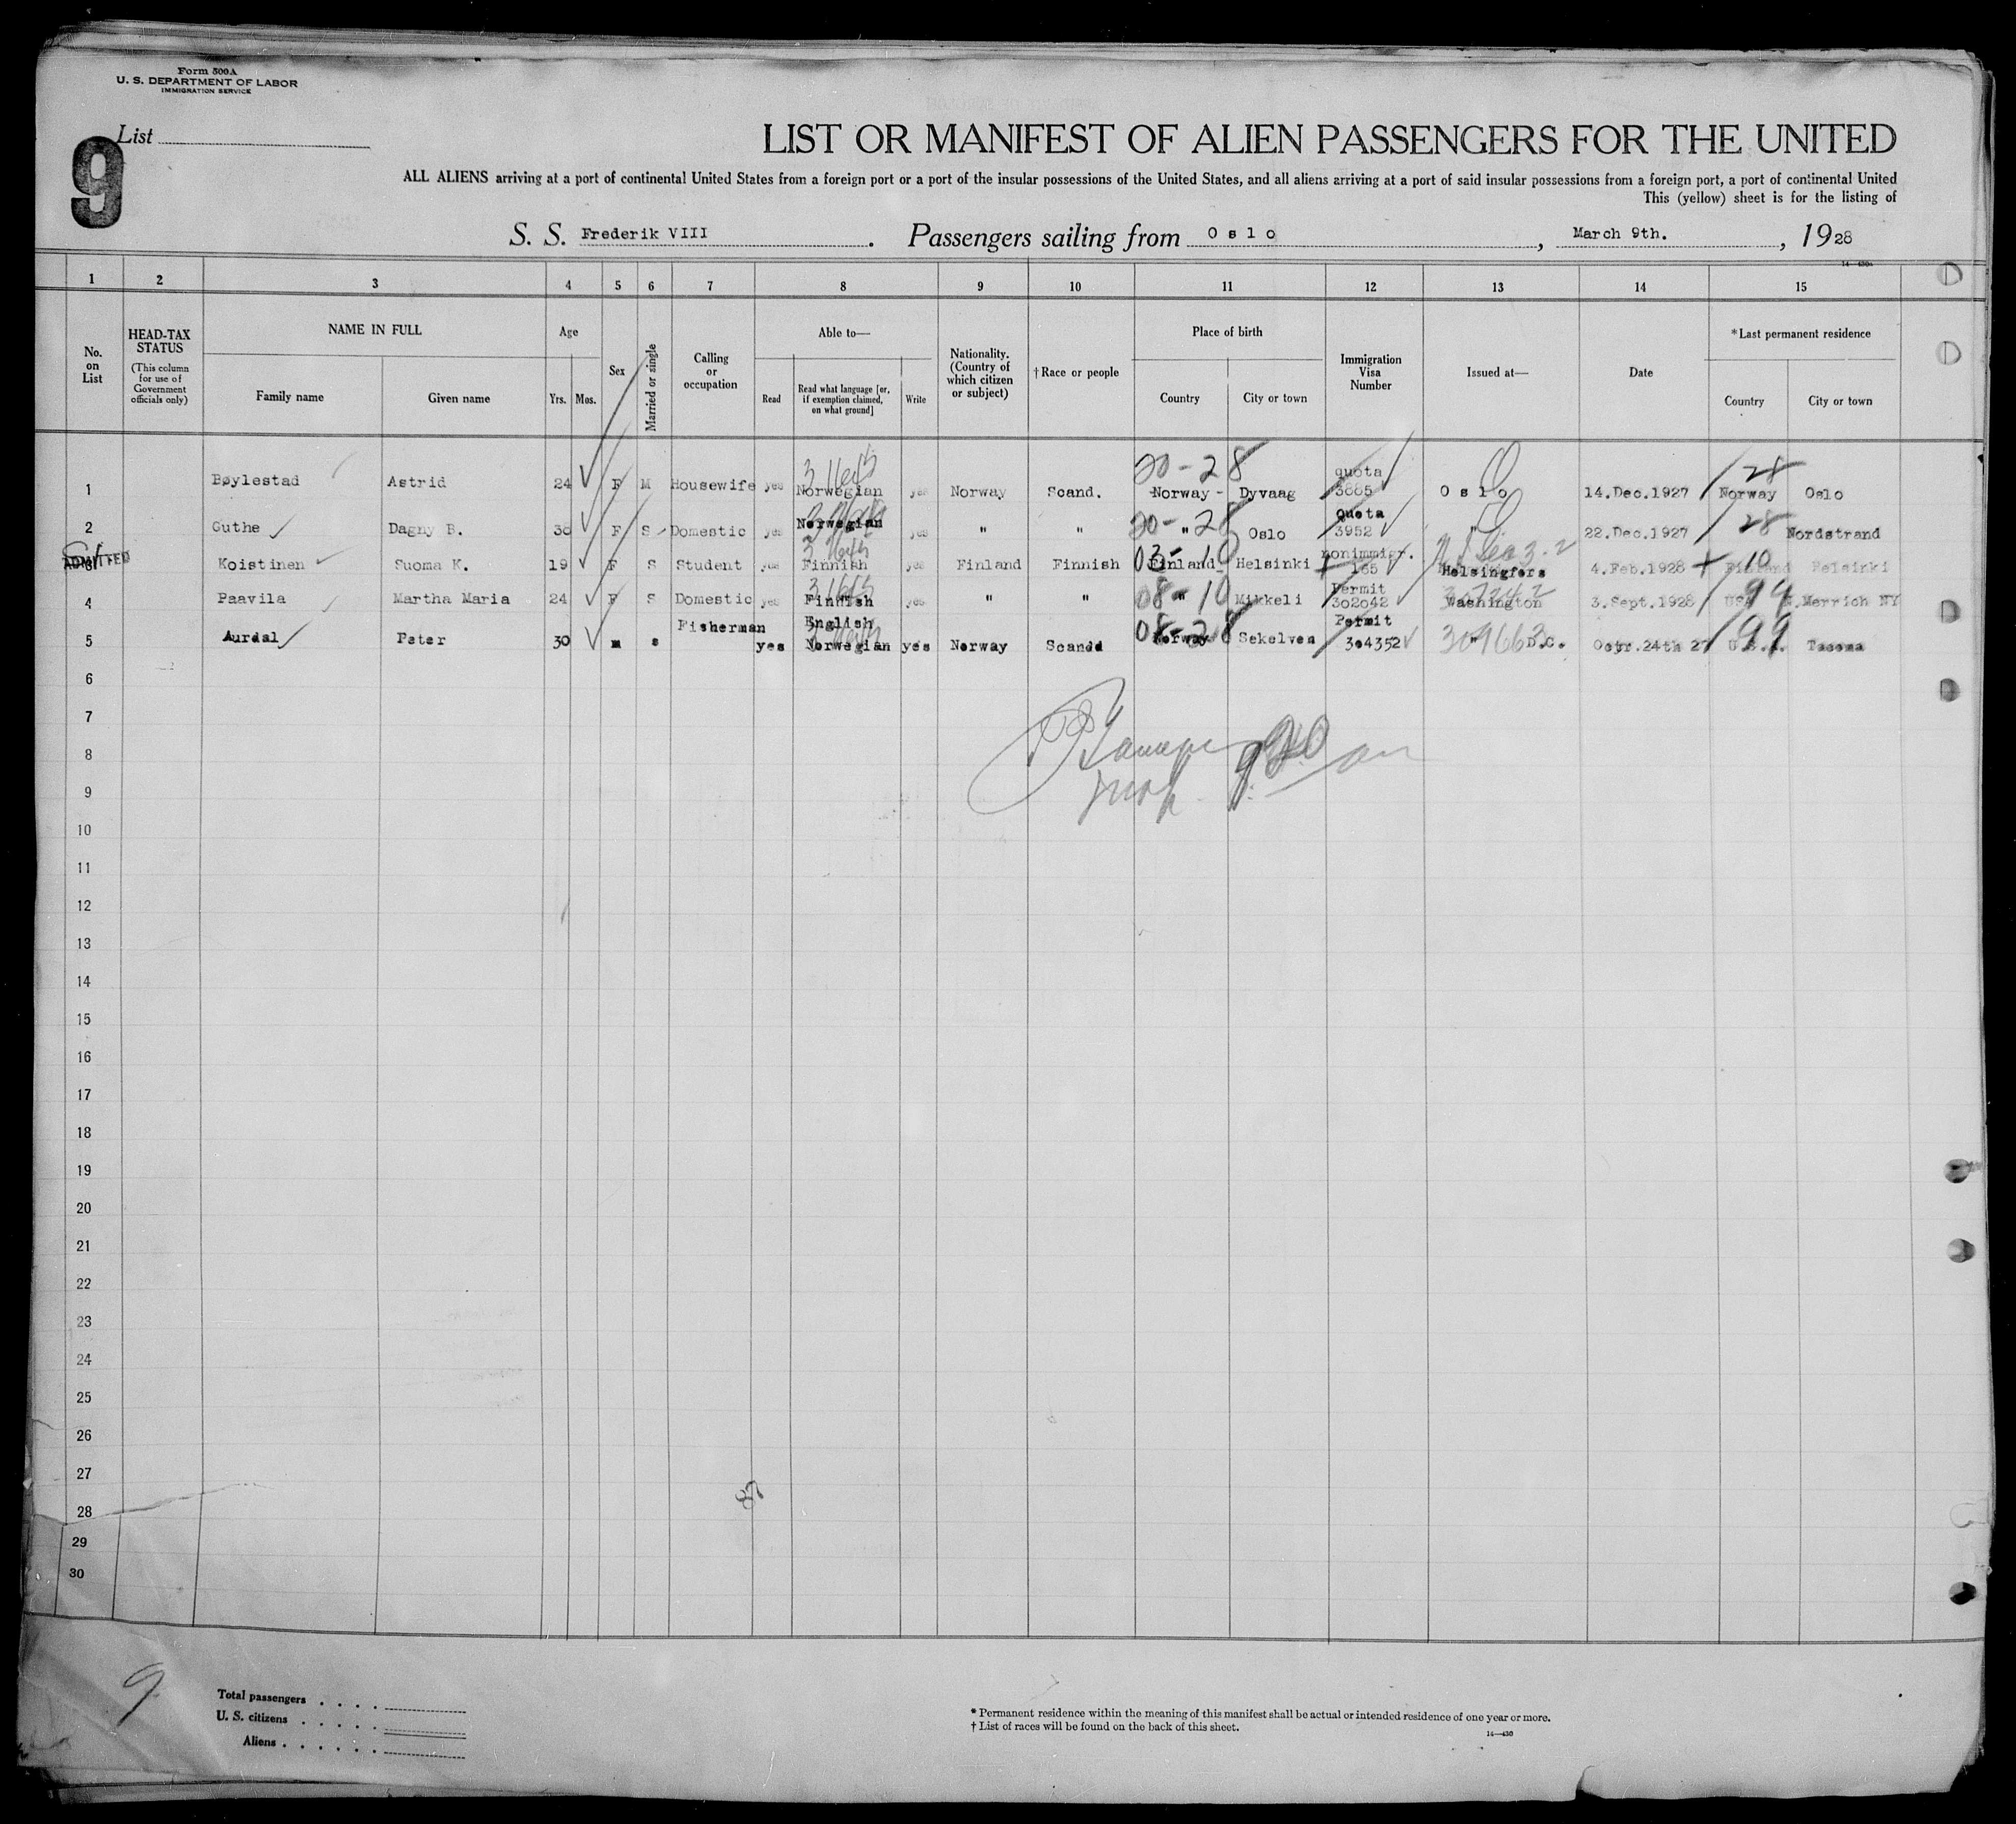 Form 500A
U. S. DEPARTMENT OF LABOR
IMMIGRATION SERVICE
9
List
LIST OR MANIFEST OF ALIEN PASSENGERS FOR THE UNITED
ALL ALIENS arriving at a port of continental United States from a foreign port or a port of the insular possessions of the United States, and all aliens arriving at a port of said insular possessions from a foreign port, a port of continental United
This (yellow) sheet is for the listing of
S. S. Frederik VIII. Passengers sailing from Oslo, March 9th., 1928
1 2 3 4 5 6 7 8 9 10 11 12 13 14 15
No. on List
HEAD-TAX STATUS
(This column for use of Government officials only)
NAME IN FULL
Family name
Given name
Age
Yrs. Mos.
Sex
Married or single
Calling or occupation
Able to—
Read
Read what language [or, if exemption claimed, on what ground]
Write
Nationality. (Country of which citizen or subject)
†Race or people
Place of birth
Country
City or town
Immigration Visa Number
Issued at—
Date
*Last permanent residence
Country
City or town
20-28 quota 28
1 Bøylestad Astrid 24 F M Housewife yes Norwegian yes Norway Scand. Norway - Dyvaag 3885 Oslo 14.Dec.1927 Norway Oslo
2 Guthe Dagny B. 38 F S Domestic yes Norwegian yes " " 20-28 " Oslo Quota 3952 " 22.Dec.1927 28 Nordstrand
ADMITTED
3 Koistinen Suoma K. 19 F S Student yes Finnish yes Finland Finnish 03-10 Finland Helsinki nonimmigr. 165 Helsingfors 4.Feb.1928 10 Finland Helsinki
4 Paavila Martha Maria 24 F S Domestic yes Finnish yes " " 08-10 " Mikkeli Permit 302042 Washington 3.Sept.1928 USA 99 Merrich NY
5 Aurdal Peter 30 m s Fisherman yes English Norwegian yes Norway Scand 08-28 Norway Sekelven Permit 304352 " 309663 D.C. Octr.24th 27 U.S.A. 99 Tacoma
6
7
8
9
10
11
12
13
14
15
16
17
18
19
20
21
22
23
24
25
26
27
28
29
30
9
Total passengers
U. S. citizens
Aliens
* Permanent residence within the meaning of this manifest shall be actual or intended residence of one year or more.
† List of races will be found on the back of this sheet.
14—430